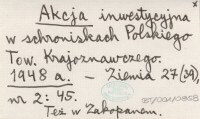 Akcja inwestycyjna
w schroniskach Polskiego
Tow. Krajoznawczego.
1948 a. — Ziemia 27(39),
nr 2: 45.
Też w Zakopanem.